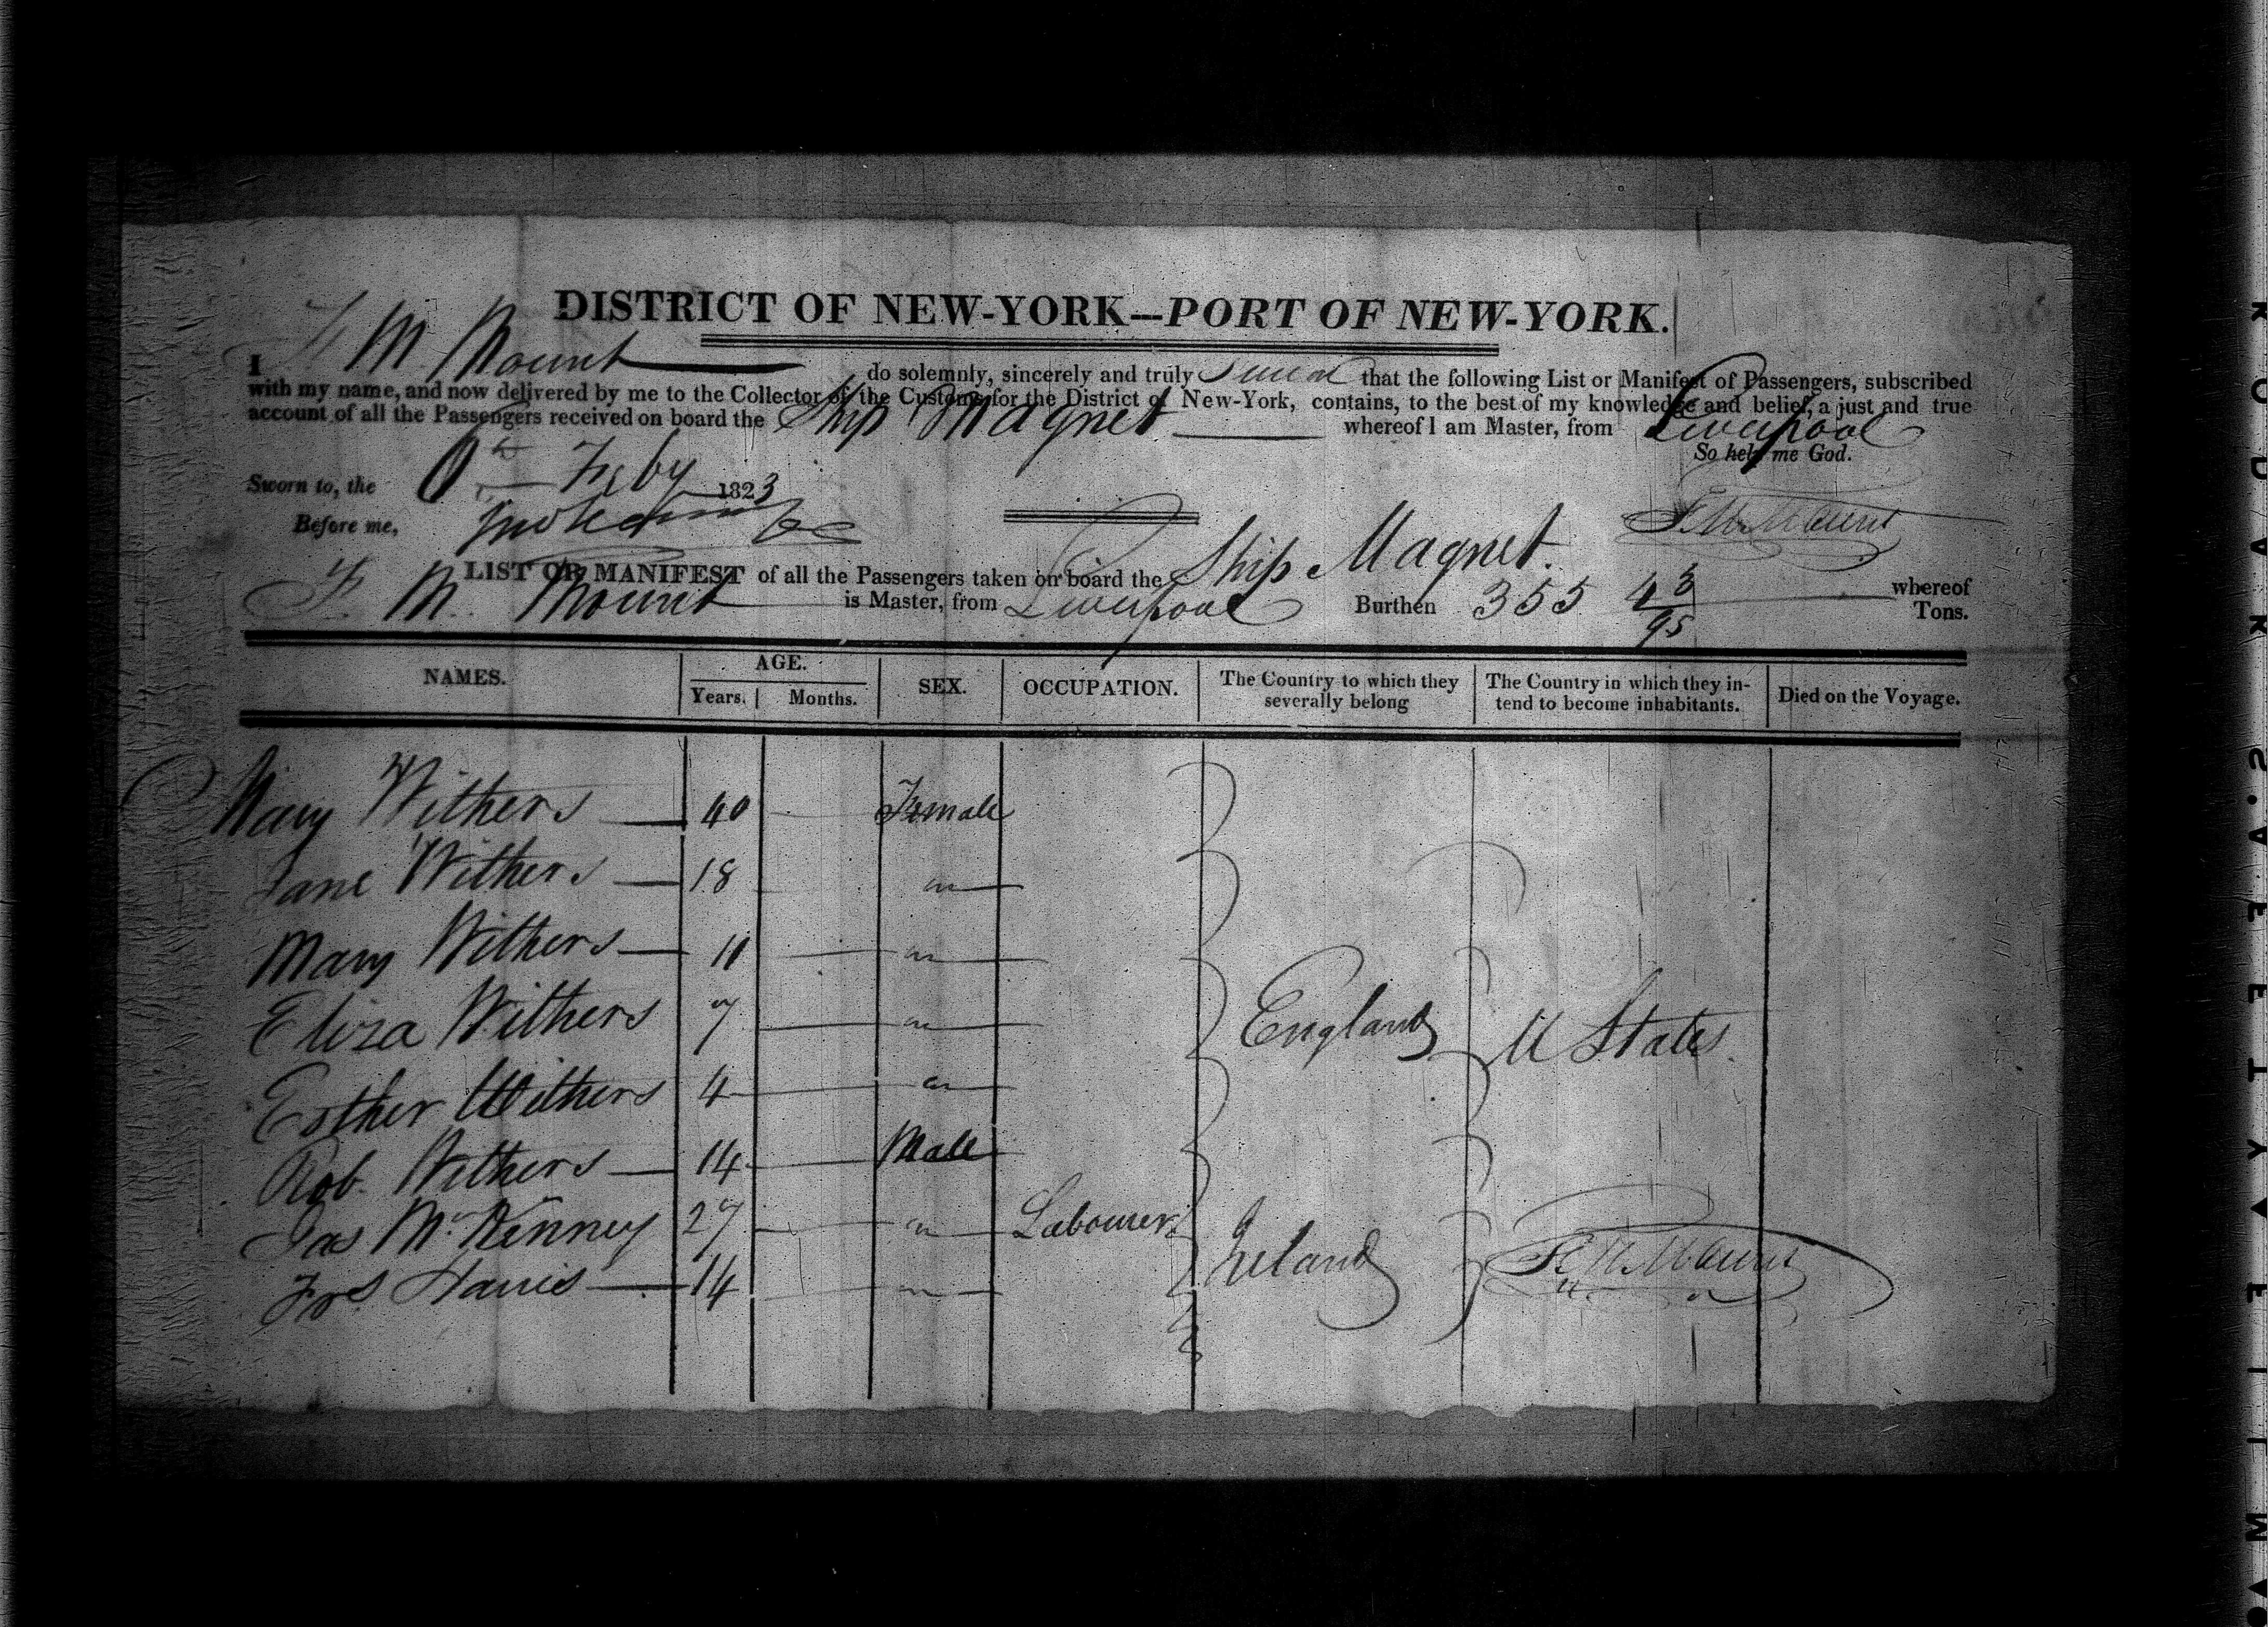 DISTRICT OF NEW-YORK—PORT OF NEW-YORK.
I M Mount do solemnly, sincerely and truly Swear that the following List or Manifest of Passengers, subscribed
with my name, and now delivered by me to the Collector of the Customs for the District of New-York, contains, to the best of my knowledge and belief, a just and true
account of all the Passengers received on board the Ship Magnet whereof I am Master, from Liverpool
So help me God.
Sworn to, the Feby 1823
Before me,
LIST OR MANIFEST of all the Passengers taken on board the Ship Magnet. whereof
F. M. Mount is Master, from Liverpool Burthen 355 43/95 Tons.
NAMES. AGE. Years. Months. SEX. OCCUPATION. The Country to which they severally belong The Country in which they intend to become inhabitants. Died on the Voyage.
Mary Withers 40 Female
Jane Withers 18 "
Mary Withers 11 "
Eliza Withers 7 " England U States.
Esther Withers 4 "
Rob. Withers 14 Male
Jas McKinney 27 " Labourer Ireland
Frs Harris 14 "